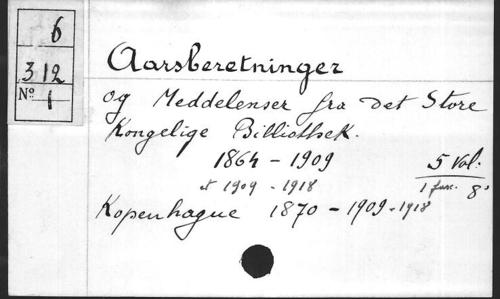 6
312
No 1
Aarsberetninger
og Meddelenser fra det Store
Kongelige Billiothek.
1864 - 1909 5 Vol.
et 1909 - 1918 1 fasc. 8°
Kopenhague 1870 - 1909 - 1918